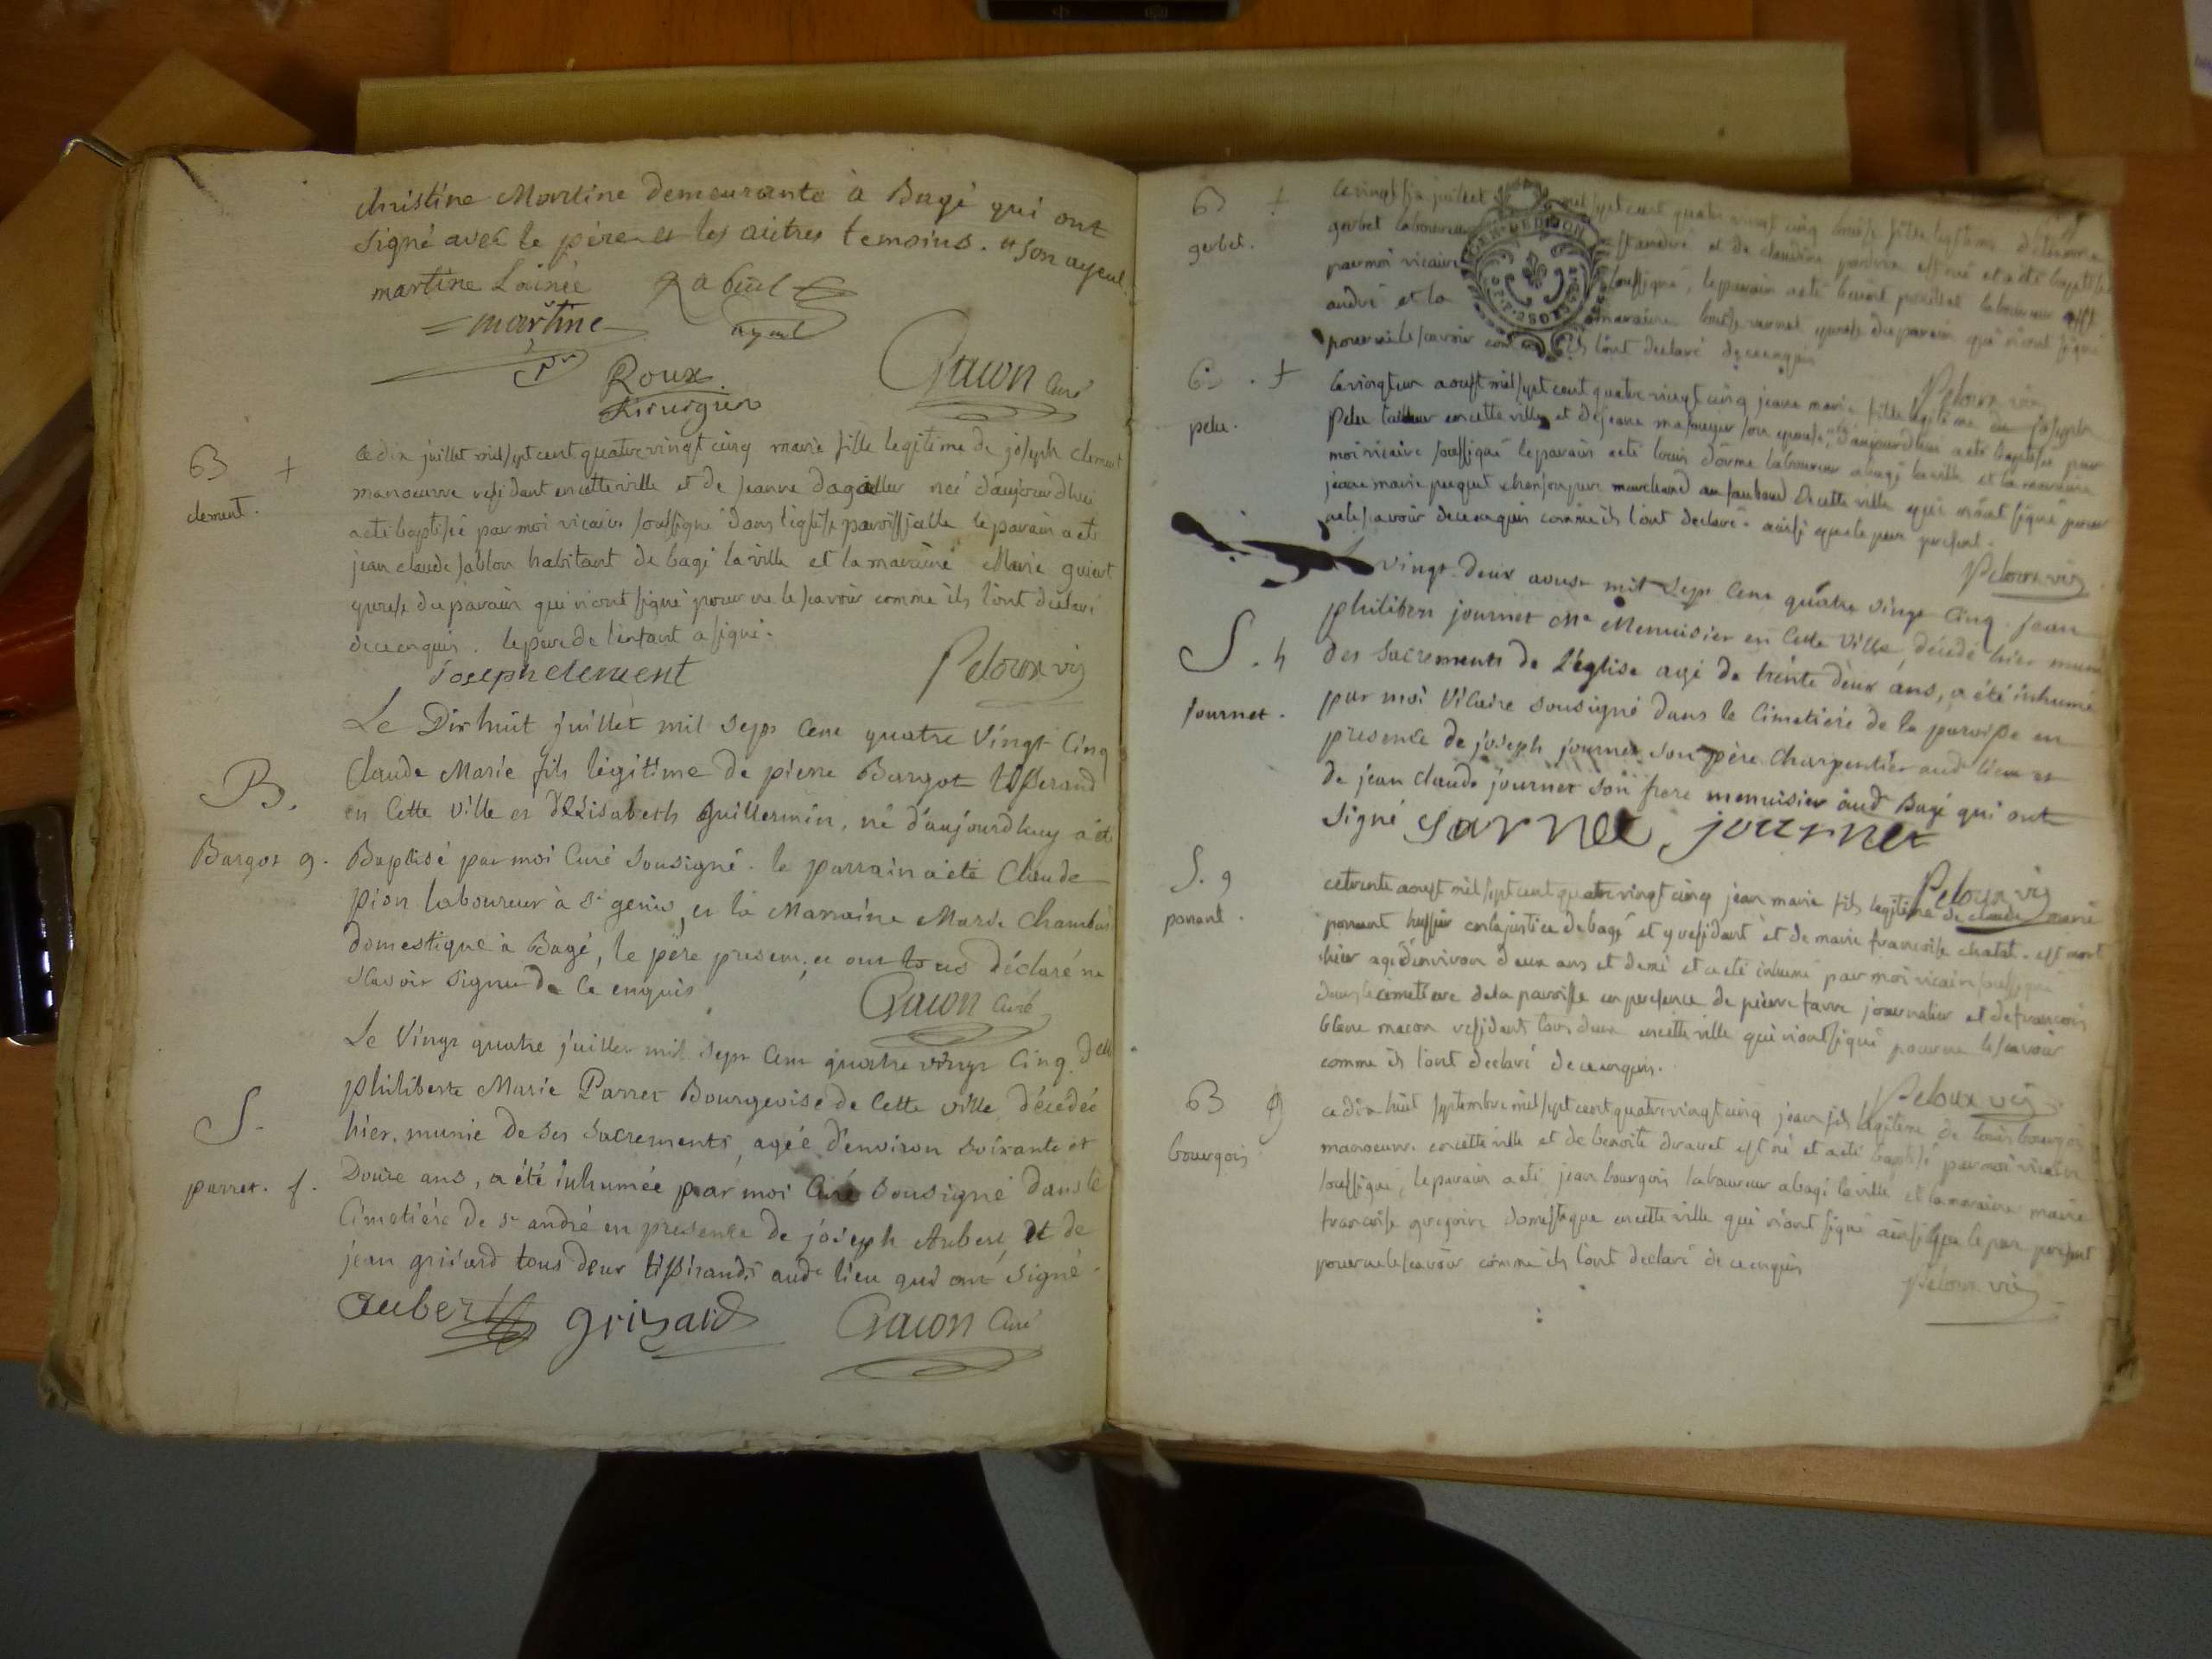 christine Martine demeurante à Bagé qui ont
signé avec le père et les autres temoins. et son ayeul.
martine Lainée Rabuel
martine ayeul
Roux Gacon Curé
chirurgien
B +
clement.
ce dix juillet mil sept cent quatre vingt cinq marie fille legitime de joseph clement
manoeuvre residant en cette ville et de jeanne dagallier née d'aujourdhui
a été baptisée par moi vicaire soussigné dans l'église paroissialle le parain a été
jean claude sablon habitant de bagé la ville et la maraine Marie guiert
epouse du parain qui n'ont signé pour ne le scavoir comme ils l'ont déclaré
de ce enquis. le pere de l'enfant a signé.
joseph clement Peloux vic
Le Dix huit juillet mil sept Cent quatre Vingt Cinq
Claude Marie fils légitime de pierre Bargot tisserand
B.
en Cette Ville et d'Elisabeth Guillermin, né d'aujourdhuy a été
Bargot g.
Baptisé par moi Curé Sousigné. le parrain a été Claude
pion laboureur à St genis, et la Marraine Marie
domestique à Bagé, le père present, et ont tous déclaré ne
scavoir signer de Ce enquis Gacon Curé
Le Vingt quatre juillet mil sept Cent quatre vingt Cinq. dlle
philiberte Marie Parret Bourgeoise de Cette ville, décedée
S.
hier, munie de ses Sacrements, agée d'environ soixante et
parret. f.
Douze ans, a été inhumée par moi Curé Sousigné dans le
Cimetière de St andré en presence de joseph Aubert et de
jean grisard tous deux tisserands aud. lieu qui ont signé.
aubert grisard Gacon Curé
B +
gerbet.
ce vingt six juillet mil sept cent quatre vingt cinq fille legitime
gerbet laboureur St andré et de claudine est né et a été baptisée
par moi vicaire soussigné, le parain a été benoit laboureur
andré et la maraine vernet epouse du parain qui n'ont signé
pour ne le scavoir comme ils l'ont declaré de ce enquis
Peloux vic
B . +
pelu.
ce vingt un aoust mil sept cent quatre vingt cinq jeane marie fille legitime de joseph
pelu tailleur en cette ville et de jeane son epouse, née d'aujourdhui a été baptisée par
moi vicaire soussigné le parain a été louis dorme laboureur a bagé la ville et la maraine
jeane marie marchand au faubourd de cette ville qui n'ont signé pour
ne le scavoir de ce enquis comme ils l'ont declaré. ainsi que le pere present.
Peloux vic
Le vingt deux aoust mil Sept Cent quatre vingt Cinq. jean
philibert journet Me Menuisier en Cette Ville, décedé hier muni
S. h
des Sacrements de l'église agé de trente deux ans, a été inhumé
journet.
par moi Vicaire Sousigné dans le Cimetière de la paroisse en
presence de joseph journet son père Charpentier aud. lieu et
de jean claude journet son frere menuisier aud. Bagé qui ont
signé journet journet
Peloux vic
S. g
ponant.
ce trente aoust mil sept cent quatre vingt cinq jean marie fils legitime de claude marie
ponant huissier en la justice de bagé et y residant et de marie francoise chatel. est mort
hier agé d'environ deux ans et demi et a été inhumé par moi vicaire soussigné
dans le cimetiere de la paroisse en presence de pierre favre journalier et de francois
blanc macon residant tous deux en cette ville qui n'ont signé pour ne le scavoir
comme ils l'ont declaré de ce enquis.
Peloux vic
B g
bourgois
ce dix huit septembre mil sept cent quatre vingt cinq jean fils legitime de louis bourgois
manoeuvre en cette ville et de benoite est né et a été baptisé par moi vicaire
soussigné, le parain a été jean bourgois laboureur a bagé la ville et la maraine marie
francoise gregoire domestique en cette ville qui n'ont signé ainsi que le pere present
pour ne le scavoir comme ils l'ont declaré de ce enquis
Peloux vic